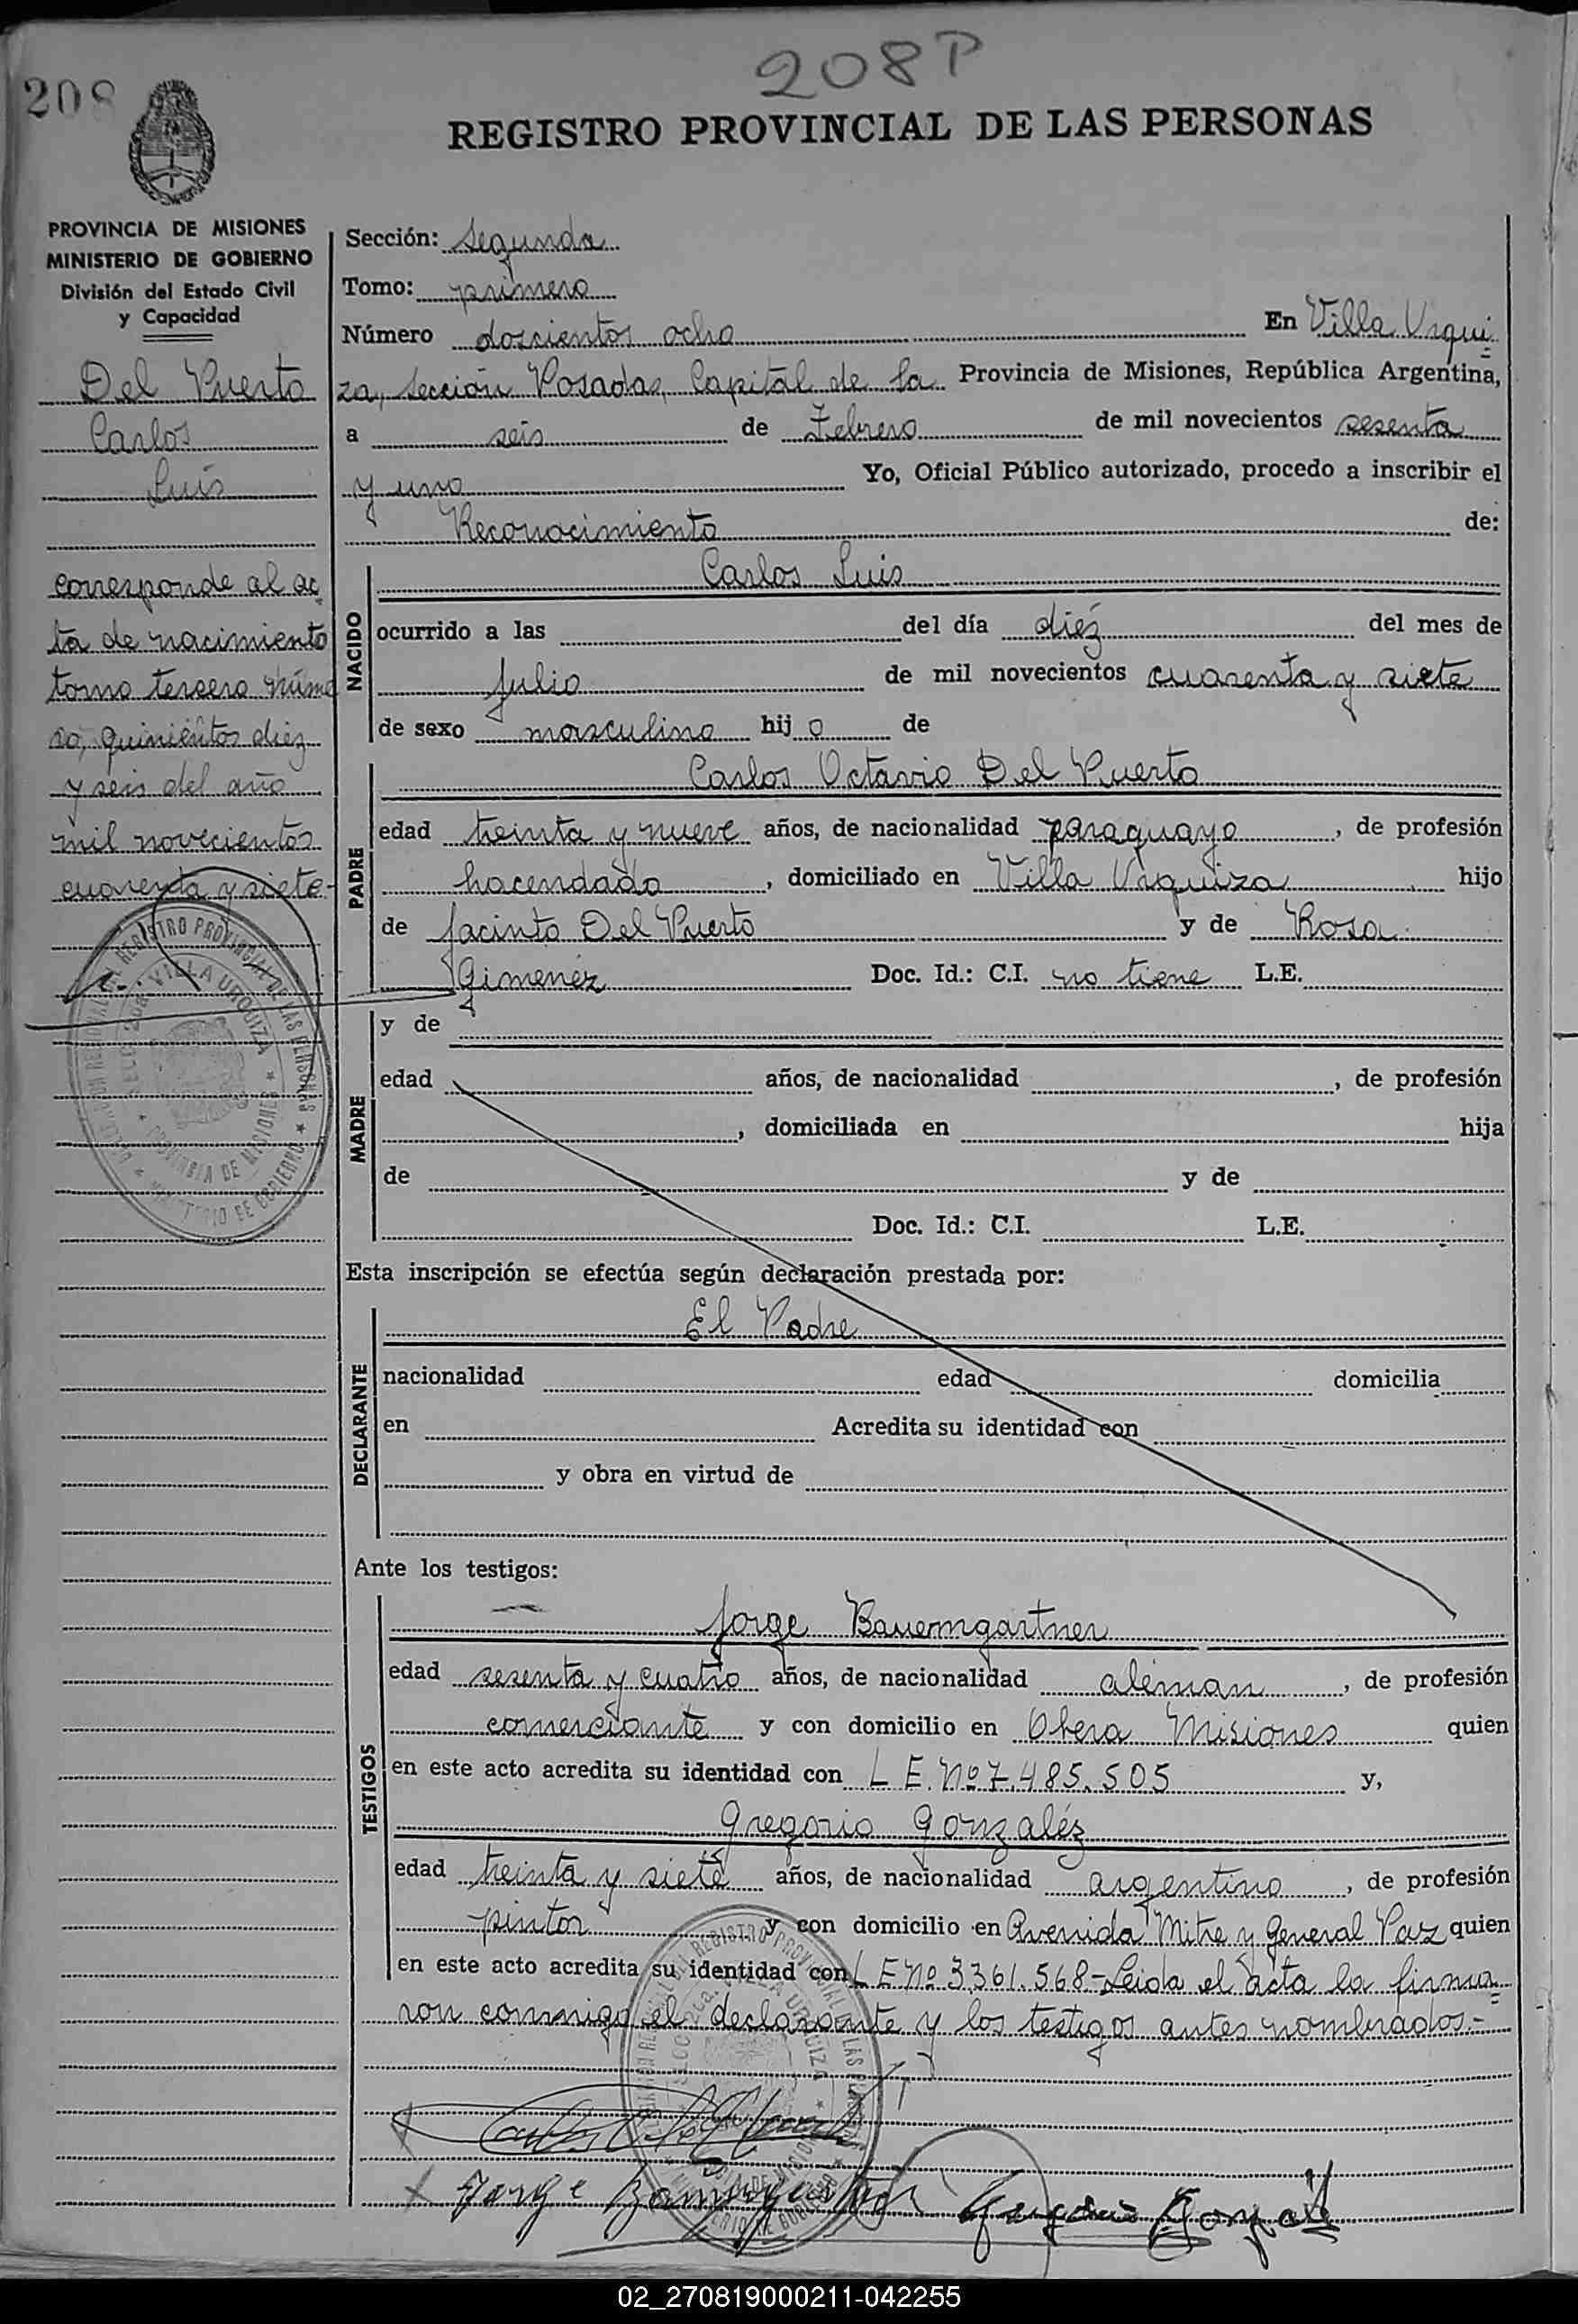 208 P
208
REGISTRO PROVINCIAL DE LAS PERSONAS
PROVINCIA DE MISIONES
MINISTERIO DE GOBIERNO
División del Estado Civil
y Capacidad
Del Puerto
Carlos
Luis
corresponde al ac
ta de nacimiento
tomo tercero núme
ro, quinientos diez
y seis del año
mil novecientos
cuarenta y siete
Sección: Segunda
Tomo: primero
Número doscientos ocho En Villa Urqui
za, Sección Posadas, Capital de la Provincia de Misiones, República Argentina,
a seis de Febrero de mil novecientos sesenta
y uno Yo, Oficial Público autorizado, procedo a inscribir el
Reconocimiento de:
NACIDO
Carlos Luis
ocurrido a las del día diéz del mes de
Julio de mil novecientos cuarenta y siete
de sexo masculino hijo de
PADRE
Carlos Octavio Del Puerto
edad treinta y nueve años, de nacionalidad paraguayo, de profesión
hacendado, domiciliado en Villa Urquiza hijo
de Jacinto Del Puerto y de Rosa
Gimenéz Doc. Id.: C.I. no tiene L.E.
MADRE
y de
edad años, de nacionalidad , de profesión
, domiciliada en hija
de y de
Doc. Id.: C.I. L.E.
Esta inscripción se efectúa según declaración prestada por:
DECLARANTE
El Padre
nacionalidad edad domicilia
en Acredita su identidad con
y obra en virtud de
Ante los testigos:
TESTIGOS
Jorge Bauemgartner
edad sesenta y cuatro años, de nacionalidad aléman, de profesión
comerciante y con domicilio en Obera Misiones quien
en este acto acredita su identidad con L E. Nº 7.485.505 y,
Gregorio Gonzaléz
edad treinta y siete años, de nacionalidad argentino, de profesión
pintor y con domicilio en Avenida Mitre y General Paz quien
en este acto acredita su identidad con L E Nº 3.361.568-Leida el acta la firma
ron conmigo el declarante y los testigos antes nombrados.-
REGISTRO PROVINCIAL DE LAS PERSONAS
VILLA URQUIZA
PROVINCIA DE MISIONES
MINISTERIO DE GOBIERNO
02_270819000211-042255